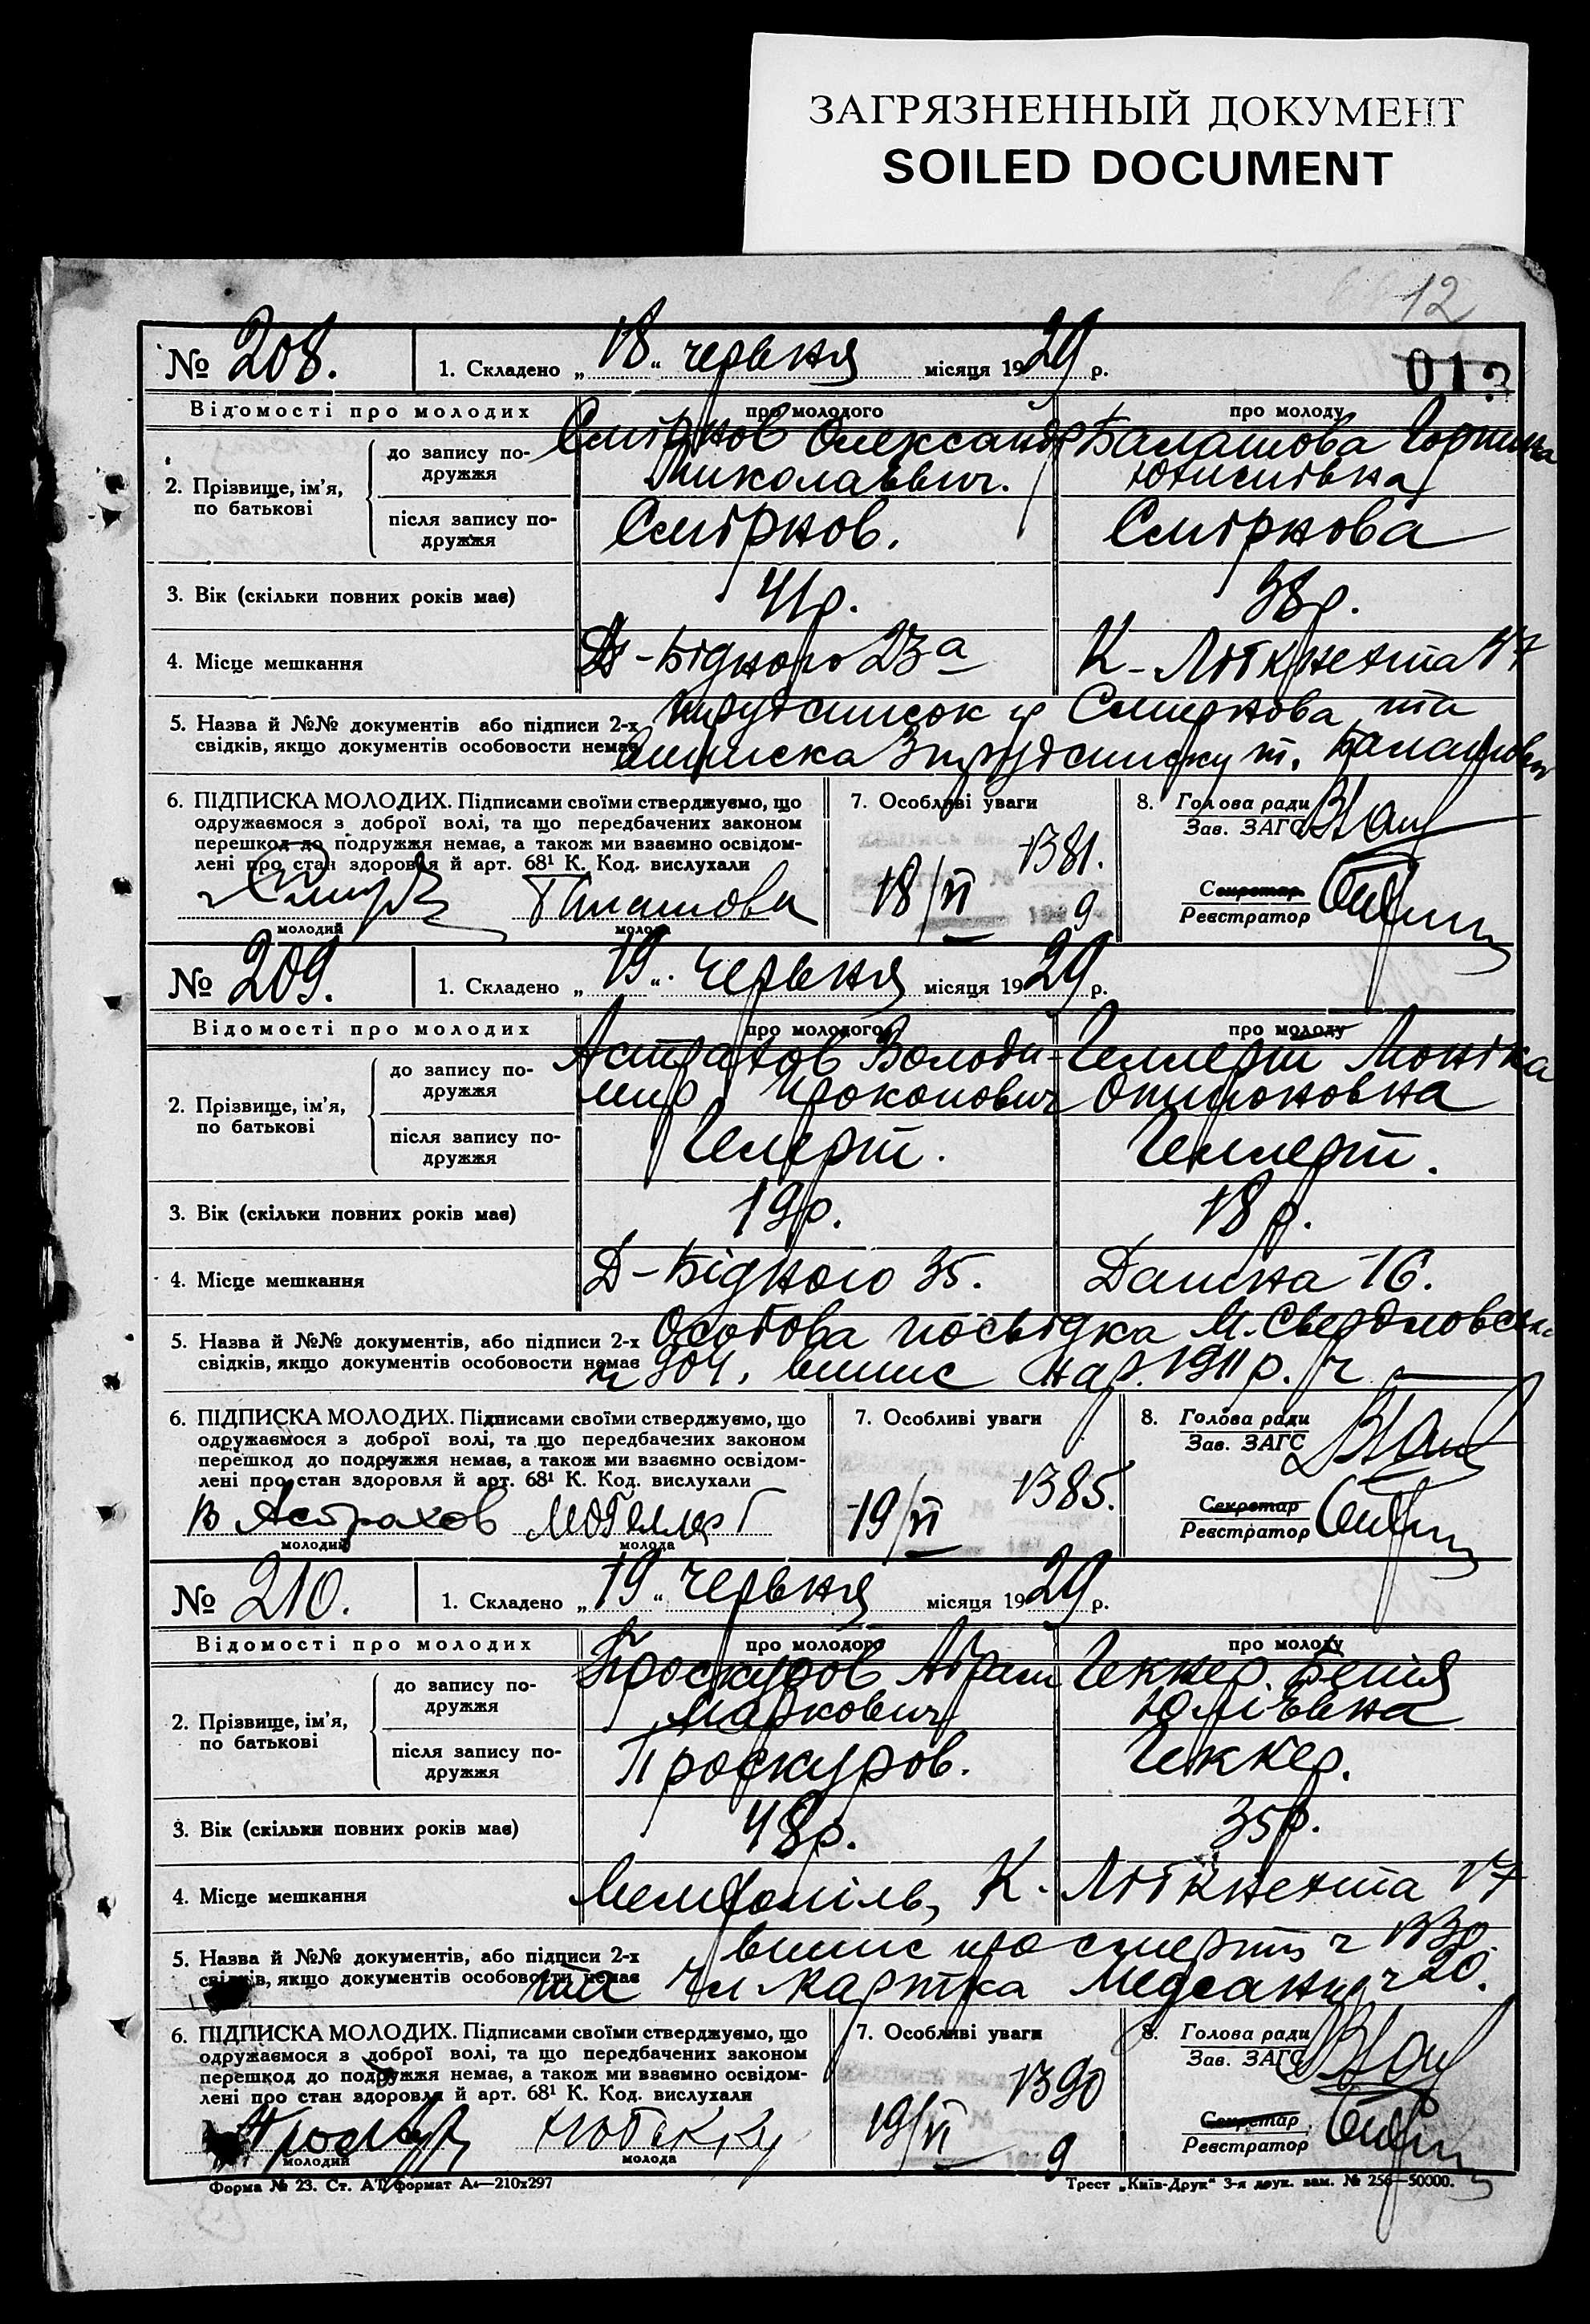 ЗАГРЯЗНЕННЫЙ ДОКУМЕНТ
SOILED DOCUMENT
12
013
№ 208. 1. Складено „18“ червня місяця 1929 р.
Відомості про молодих про молодого про молоду
2. Прізвище, ім'я, по батькові
до запису подружжя Смірнов Олександр Балашова Горпина
Николаєвич.
після запису подружжя Смірнов. Смірнова
3. Вік (скільки повних років має) 41р. 38р.
4. Місце мешкання Д-Бідного 23а К-Лібкнехта
5. Назва й №№ документів або підписи 2-х Трудсписок Смирнова та
свідків, якщо документів особовости немає виписка з трудсписку т. Балашової
6. ПІДПИСКА МОЛОДИХ. Підписами своїми стверджуємо, що
одружаємося з доброї волі, та що передбачених законом
перешкод до подружжя немає, а також ми взаємно освідом-
лені про стан здоровля й арт. 68¹ К. Код. вислухали
молодий молода
Балашова
7. Особливі уваги
1381.
18/VI 9
8. Голова ради
Зав. ЗАГС
Секретар
Реєстратор
№ 209. 1. Складено „19“ червня місяця 1929 р.
Відомості про молодих про молодого про молоду
2. Прізвище, ім'я, по батькові
до запису подружжя Астрахов Володи- Геллерт Моніка
мир Прокопович
після запису подружжя Гелерт. Геллерт.
3. Вік (скільки повних років має) 19р. 18р.
4. Місце мешкання Д-Бідного 35. 16.
5. Назва й №№ документів, або підписи 2-х Особова посвідка М.
свідків, якщо документів особовости немає ч 904, випис нар. 1911р. ч —
6. ПІДПИСКА МОЛОДИХ. Підписами своїми стверджуємо, що
одружаємося з доброї волі, та що передбачених законом
перешкод до подружжя немає, а також ми взаємно освідом-
лені про стан здоровля й арт. 68¹ К. Код. вислухали
В Астрахов МОГеллерт
молодий молода
7. Особливі уваги
1385.
19/VI
8. Голова ради
Зав. ЗАГС
Секретар
Реєстратор
№ 210. 1. Складено „19“ червня місяця 1929 р.
Відомості про молодих про молодого про молоду
2. Прізвище, ім'я, по батькові
до запису подружжя Проскуров Абрам Геккер
Маркович Юліївна
після запису подружжя Проскуров. Геккер.
3. Вік (скільки повних років має) 48р. 35р.
4. Місце мешкання К. Лібкнехта 17
5. Назва й №№ документів, або підписи 2-х випис про смерть ч 1330
свідків, якщо документів особовости немає та чл картка Медсанпр ч 20.
6. ПІДПИСКА МОЛОДИХ. Підписами своїми стверджуємо, що
одружаємося з доброї волі, та що передбачених законом
перешкод до подружжя немає, а також ми взаємно освідом-
лені про стан здоровля й арт. 68¹ К. Код. вислухали
молодий молода
7. Особливі уваги
1390
19/VI 9
8. Голова ради
Зав. ЗАГС
Секретар
Реєстратор
Форма № 23. Ст. АТ, формат А₄—210х297 Трест „Київ-Друк“ 3-я друк. зам. № 256—50000.